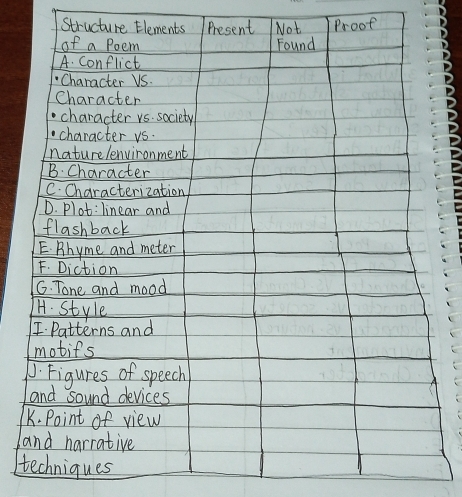 Structure Elements of a Poem
Present
Not Found
Proof
A. Conflict
• Character VS.
Character
• character vs. society
• character vs.
nature/environment
B. Character
C. Characterization
D. Plot: linear and
flashback
E. Rhyme and meter
F. Diction
G. Tone and mood
H. Style
I. Patterns and
motifs
J. Figures of speech
and sound devices
K. Point of view
and narrative
techniques